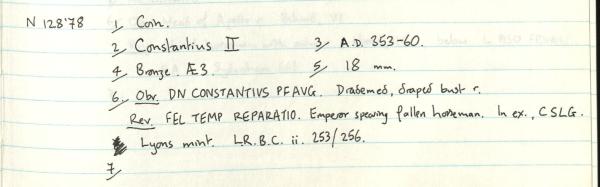 N 128'78 1, Coin.
2, Constantius II 3, A.D. 353-60.
4, Bronze. Æ3. 5, 18 mm.
6, Obv. DN CONSTANTIVS PF AVG. Diademed, draped bust r.
Rev. FEL TEMP REPARATIO. Emperor spearing fallen horseman. In ex., CSLG.
Lyons mint. L.R.B.C. ii. 253/256.
7,